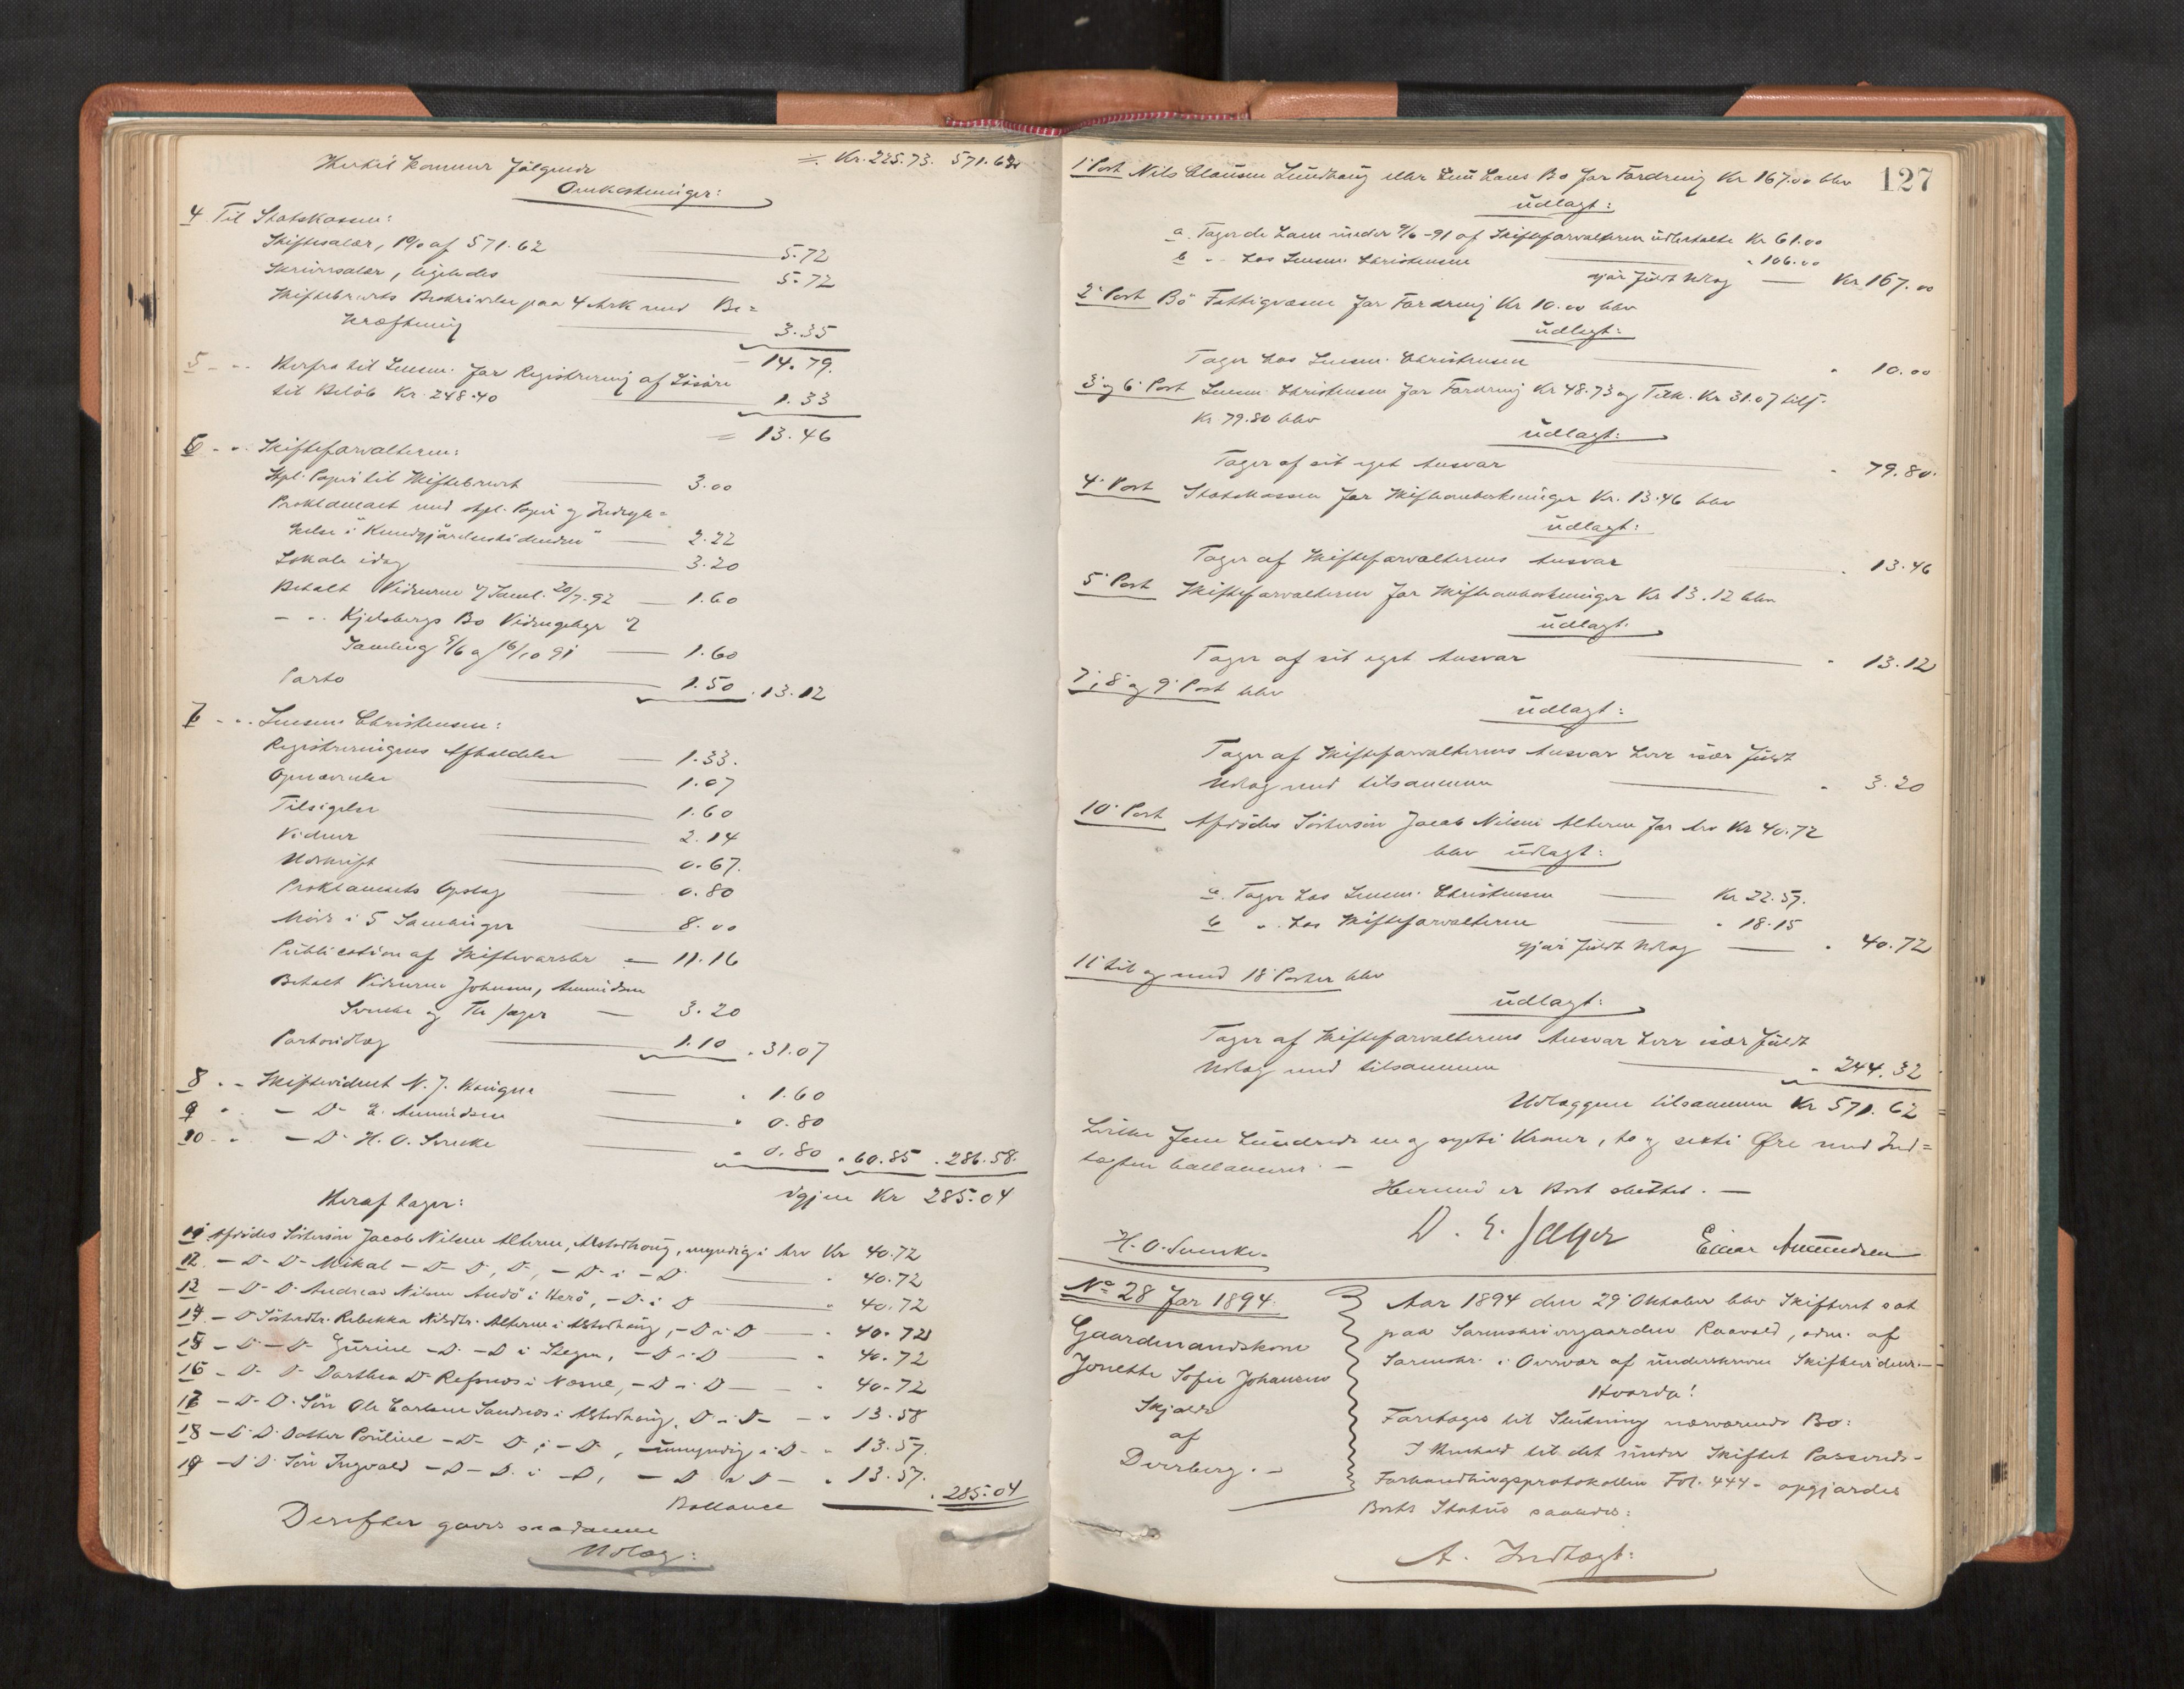 Hertil kommer følgende ÷ Kr. 225.73. 571.62
Omkostninger:
4 Til Statskassen:
Skiftesalær, 1% af 571.62 5.72
Skriversalær, ligeledes 5.72
Skiftebrevets Beskrivelse paa 4 Ark med Be=
kræftning 3.35
14.79.
5 - - Herfra til Lensm. for Registrering af Løsøre
til Beløb Kr. 248.40 1.33
= 13.46
6 - - Skifteforvalteren:
Stpl. Papir til Skiftebrevet 3.00
Proklamaet med stpl. Papir og Indryk=
kelse i "Kundgjørelsestidenden" 2.22
Lokale idag 3.20
Betalt Vidnerne v/ Saml. 20/7.92 1.60
- - Kjelsbergs Bo Vidnegebyr v/
Samling 9/6 og 16/10 91 1.60
Porto 1.50 . 13.12
7 - - Lensm. Christensen:
Registreringens Afholdelse 1.33.
Opnævnelse 1.07
Tilsigelse 1.60
Vidner 2.14
Udskrift 0.67.
Proklamaets Opslag 0.80
Møde i 5 Samlinger 8.00
Publication af Skiftevarsler 11.16
Betalt Vidnerne Johnsen, Amundsen
Svenke og Th. Jæger 3.20
Portoudlæg 1.10 . 31.07
8 - - Skiftevidnet N. J. 1.60
9 - - D- E. Amundsen " 0.80
10 - - D- H. O. Svenke " 0.80 " 60.85 . 286.58.
igjen Kr 285.04
Heraf tager:
11 Afdødes Søstersøn Jacob Nilsen Alteren, Alstadhoug, myndig i Arv Kr 40.72
12 - D- D- Mikal - D- D, D, - D- i - D " 40.72
13 - D- D- Andreas Nilsen Andø i Herø, - D- i D " 40.72
14 - D Søsterdtr. Rebekka Nilsdtr. Alteren i Alstadhoug, - D- i D " 40.72
15 - D - D- Gurine - D. - D i Stegen, - D- i D " 40.72
16 - D- D- Dorthea D- Refsnes i Næsne, - D- i D " 40.72
17 - D- D- Søn Ole Sandnes i Alstadhoug, D- i D- " 13.58
18 - D. D. Datter Pouline - D- D- i - D-, umyndig, i D- " 13.57.
19 - D. D. Søn Ingvald - D- D. i - D, - D i D- " 13.57.
Ballance . 285.04
Derefter gaves saadanne
Udlæg:
127
1' Post Nils Clausen Lundhoug eller hans Bo for Fordring Kr 167.00 blev
udlagt:
a. Tager de ham under 9/6 -91 af Skifteforvalteren udbetalte Kr 61.00
b - hos Lensm. Christensen " 106.00
gjør fuldt Udlæg Kr 167.00
2' Post Bø Fattigvæsen for Fordring Kr 10.00 blev
udlagt:
Tager hos Lensm. Christensen " 10.00
3' og 6' Post Lensm. Christensen for Fordring Kr 48.73 og Tilk. Kr 31.07 tils.
Kr 79.80 blev
udlagt:
Tager af sit eget Ansvar " 79.80.
4' Post Statskassen for Skifteomkostninger Kr. 13.46 blev
udlagt:
Tager af Skifteforvalterens Ansvar " 13.46
5' Post Skifteforvalteren for Skifteomkostninger Kr 13.12 blev
udlagt.
Tager af sit eget Ansvar " 13.12
7', 8' og 9' Post blev
udlagt:
Tager af Skifteforvalterens Ansvar hver især fuldt
Udlæg med tilsammen " 3.20
10' Post Afdødes Søstersøn Jacob Nilsen Alteren for Arv Kr 40.72
blev udlagt:
a. Tager hos Lensm. Christensen Kr 22.57.
b " hos Skifteforvalteren " 18.15
gjør fuldt Udlæg " 40.72
11' til og med 18' Poster blev
udlagt:
Tager af Skifteforvalterens Ansvar hver især fuldt
Udlæg med tilsammen " 244.32
Udlæggene tilsammen Kr 571.62
hvilke fem hundrede en og sytti Kroner, to og seksti Øre med Ind=
tægten ballancerer. -
Hermed er Boet sluttet. -
D. E. Jæger
H. O. Svenke. Einar Amundsen
No 28 for 1894.
Gaardmandskone
Jonette Sofie Johansen
Skjolde
af
Dverberg. -
Aar 1894 den 29' Oktober blev Skifteret sat
paa Sorenskrivergaarden Raavold, adm. af
Sorenskr. i Overvær af underskrevne Skiftevidner. -
Hvorda!
Foretoges til Slutning nærværende Bo:
I Henhold til det under Skiftet Passerede -
Forhandlingsprotokollen Fol. 444 - opgjordes
Boets Status saaledes:
A. Indtægt: